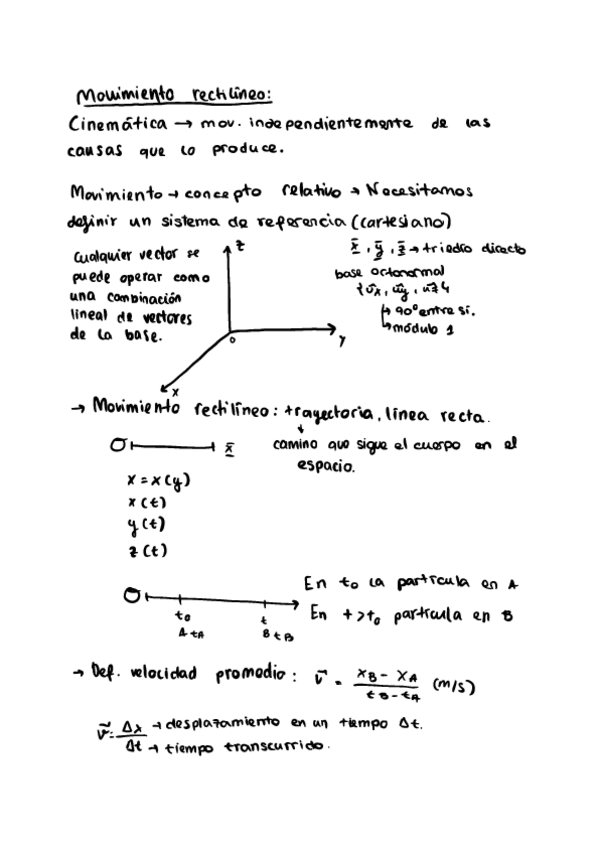 Movimiento rectilíneo:
Cinemática → mov. independientemente de las
causas que lo produce.
Movimiento → concepto relativo → Necesitamos
definir un sistema de referencia (cartesiano)
Cualquier vector se
puede operar como
una combinación
lineal de vectores
de la base.
z
y
x
o
x̄, ȳ, z̄ → triedro directo
base octonormal
{ūx, ūy, ūz}
↳ 90º entre sí.
↳ módulo 1
→ Movimiento rectilíneo: trayectoria, línea recta.
camino que sigue el cuerpo en el
espacio.
O x̄
x = x(y)
x(t)
y(t)
z(t)
En to la partícula en A
En t>to partícula en B
O
to t
A tA B tB
→ Def. velocidad promedio: v̄ = xB - xA / tB - tA (m/s)
v̄ = Δx → desplazamiento en un tiempo Δt.
Δt → tiempo transcurrido.